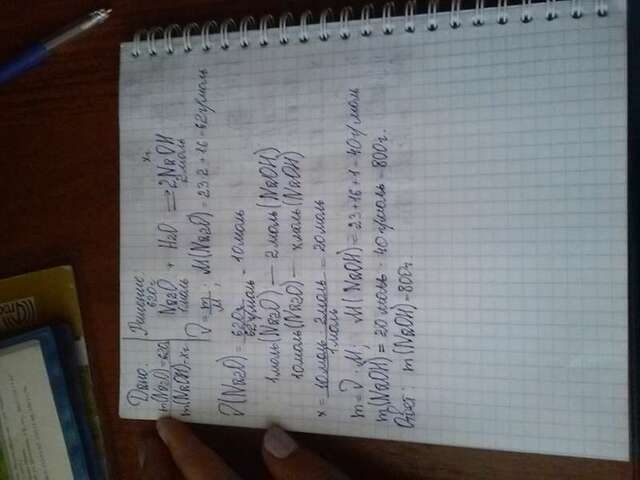 Дано:
m(Na2O)=620г
m(NaOH)-xг
Решение:
620г xг
Na2O + H2O = 2NaOH
1моль 2моль
ν = m/M; M(Na2O) = 23·2+16=62г/моль
ν(Na2O) = 620г/62г/моль = 10моль
1моль(Na2O) — 2моль(NaOH)
10моль(Na2O) — xмоль(NaOH)
x = 10моль · 2моль/1моль = 20моль
m=ν·M; M(NaOH)=23+16+1=40г/моль
m(NaOH) = 20моль · 40г/моль = 800г.
Ответ: m(NaOH)=800г.